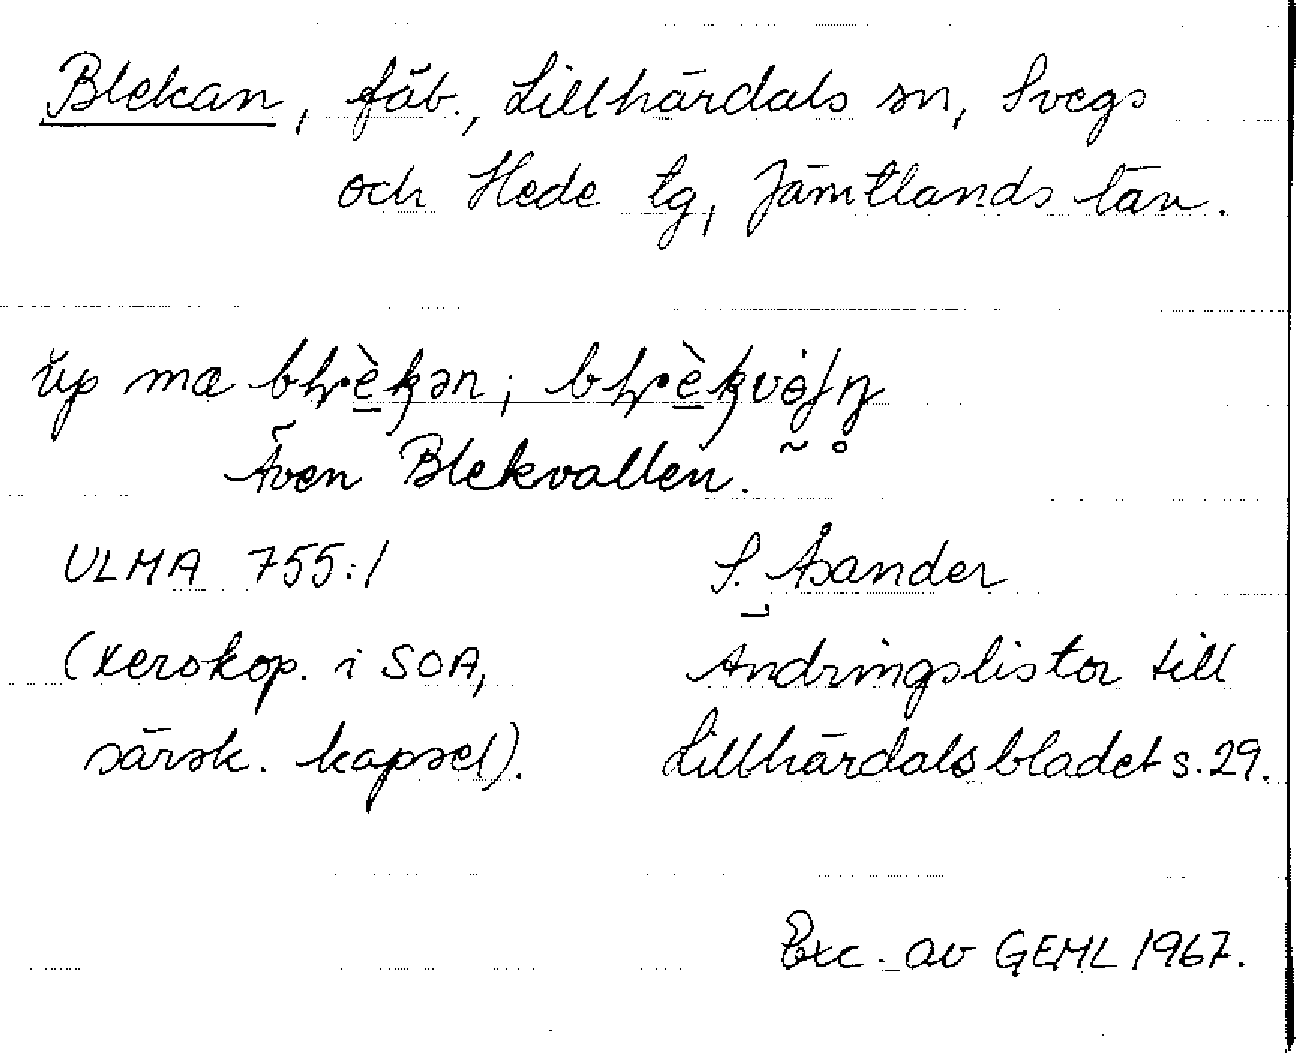 Blekan, fäb., Lillhärdals sn, Svegs
och Hede tg, Jämtlands län.
up mæ
Även Blekvallen.
ULMA 755:1 S. Åsander
(xerokop. i SOA, Ändringslistor till
särsk. kapsel). Lillhärdalsbladet s. 29.
Exc. av GEML 1967.